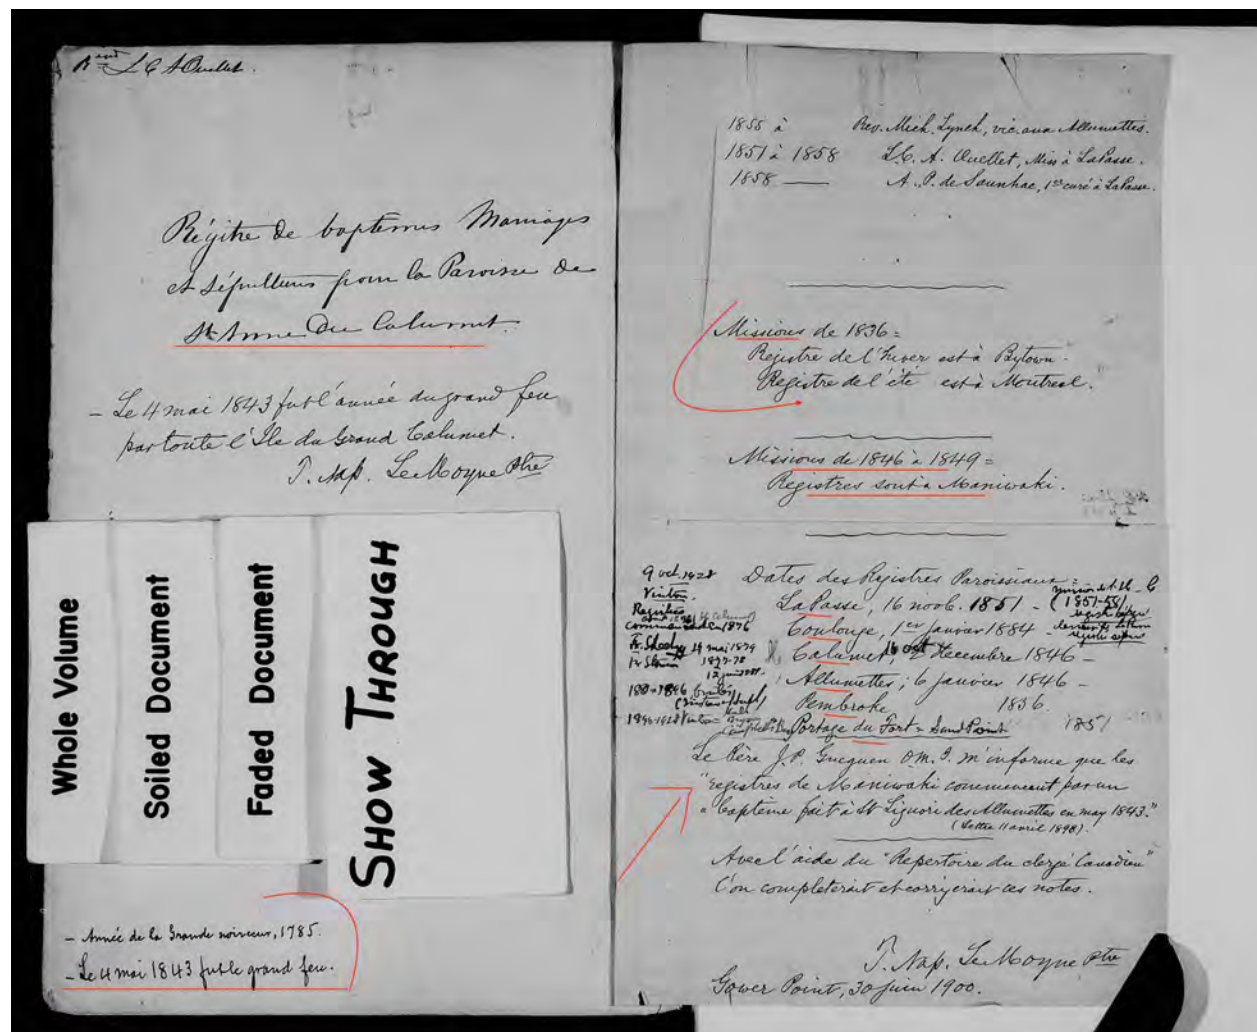 Rev L C A Ouellet.
Régitre de baptêmes Mariages
et Sépultures pour la Paroisse de
St Anne Du Calumet.
– Le 4 mai 1843 fut l'année du grand feu
par toute l'Ile du Grand Calumet.
T. Nap. LeMoyne Ptre
Whole Volume
Soiled Document
Faded Document
SHOW THROUGH
– Année de la Grande noirceur, 1785.
– Le 4 mai 1843 fut le grand feu.
1855 à Rev. Mich. Lynch, vic. aux Allumettes.
1851 à 1858 L. C. A. Ouellet, Miss à LaPasse.
1858 — A. P. de Saunhac, 1er curé à LaPasse.
Missions de 1836 =
Registre de l'hiver est à Bytown.
Registre de l'été est à Montreal.
Missions de 1846 à 1849 =
Registres sont à Maniwaki.
Dates des Registres Paroissiaux =
LaPasse, 16 nov. 1851 – (1851-58)
Coulonge, 1er janvier 1884 –
Calumet, 2 Decembre 1846 –
16 oct
Allumettes; 6 janvier 1846 –
Pembroke 1836.
Portage du Fort = Sand Point 1851
9 oct. 1928
Vinton.
Registres
commencent en 1876
19 mai 1879
1877-78
Le Père J. P. Gueguen O.M.I. m'informe que les
"registres de Maniwaki commencent par un
"baptême fait à St Liguori des Allumettes en may 1843."
(Lettre 11 avril 1898).
Avec l'aide du "Repertoire du clergé Canadien"
l'on completerait et corrigerait ces notes.
T. Nap. LeMoyne Ptre
Gower Point, 30 juin 1900.